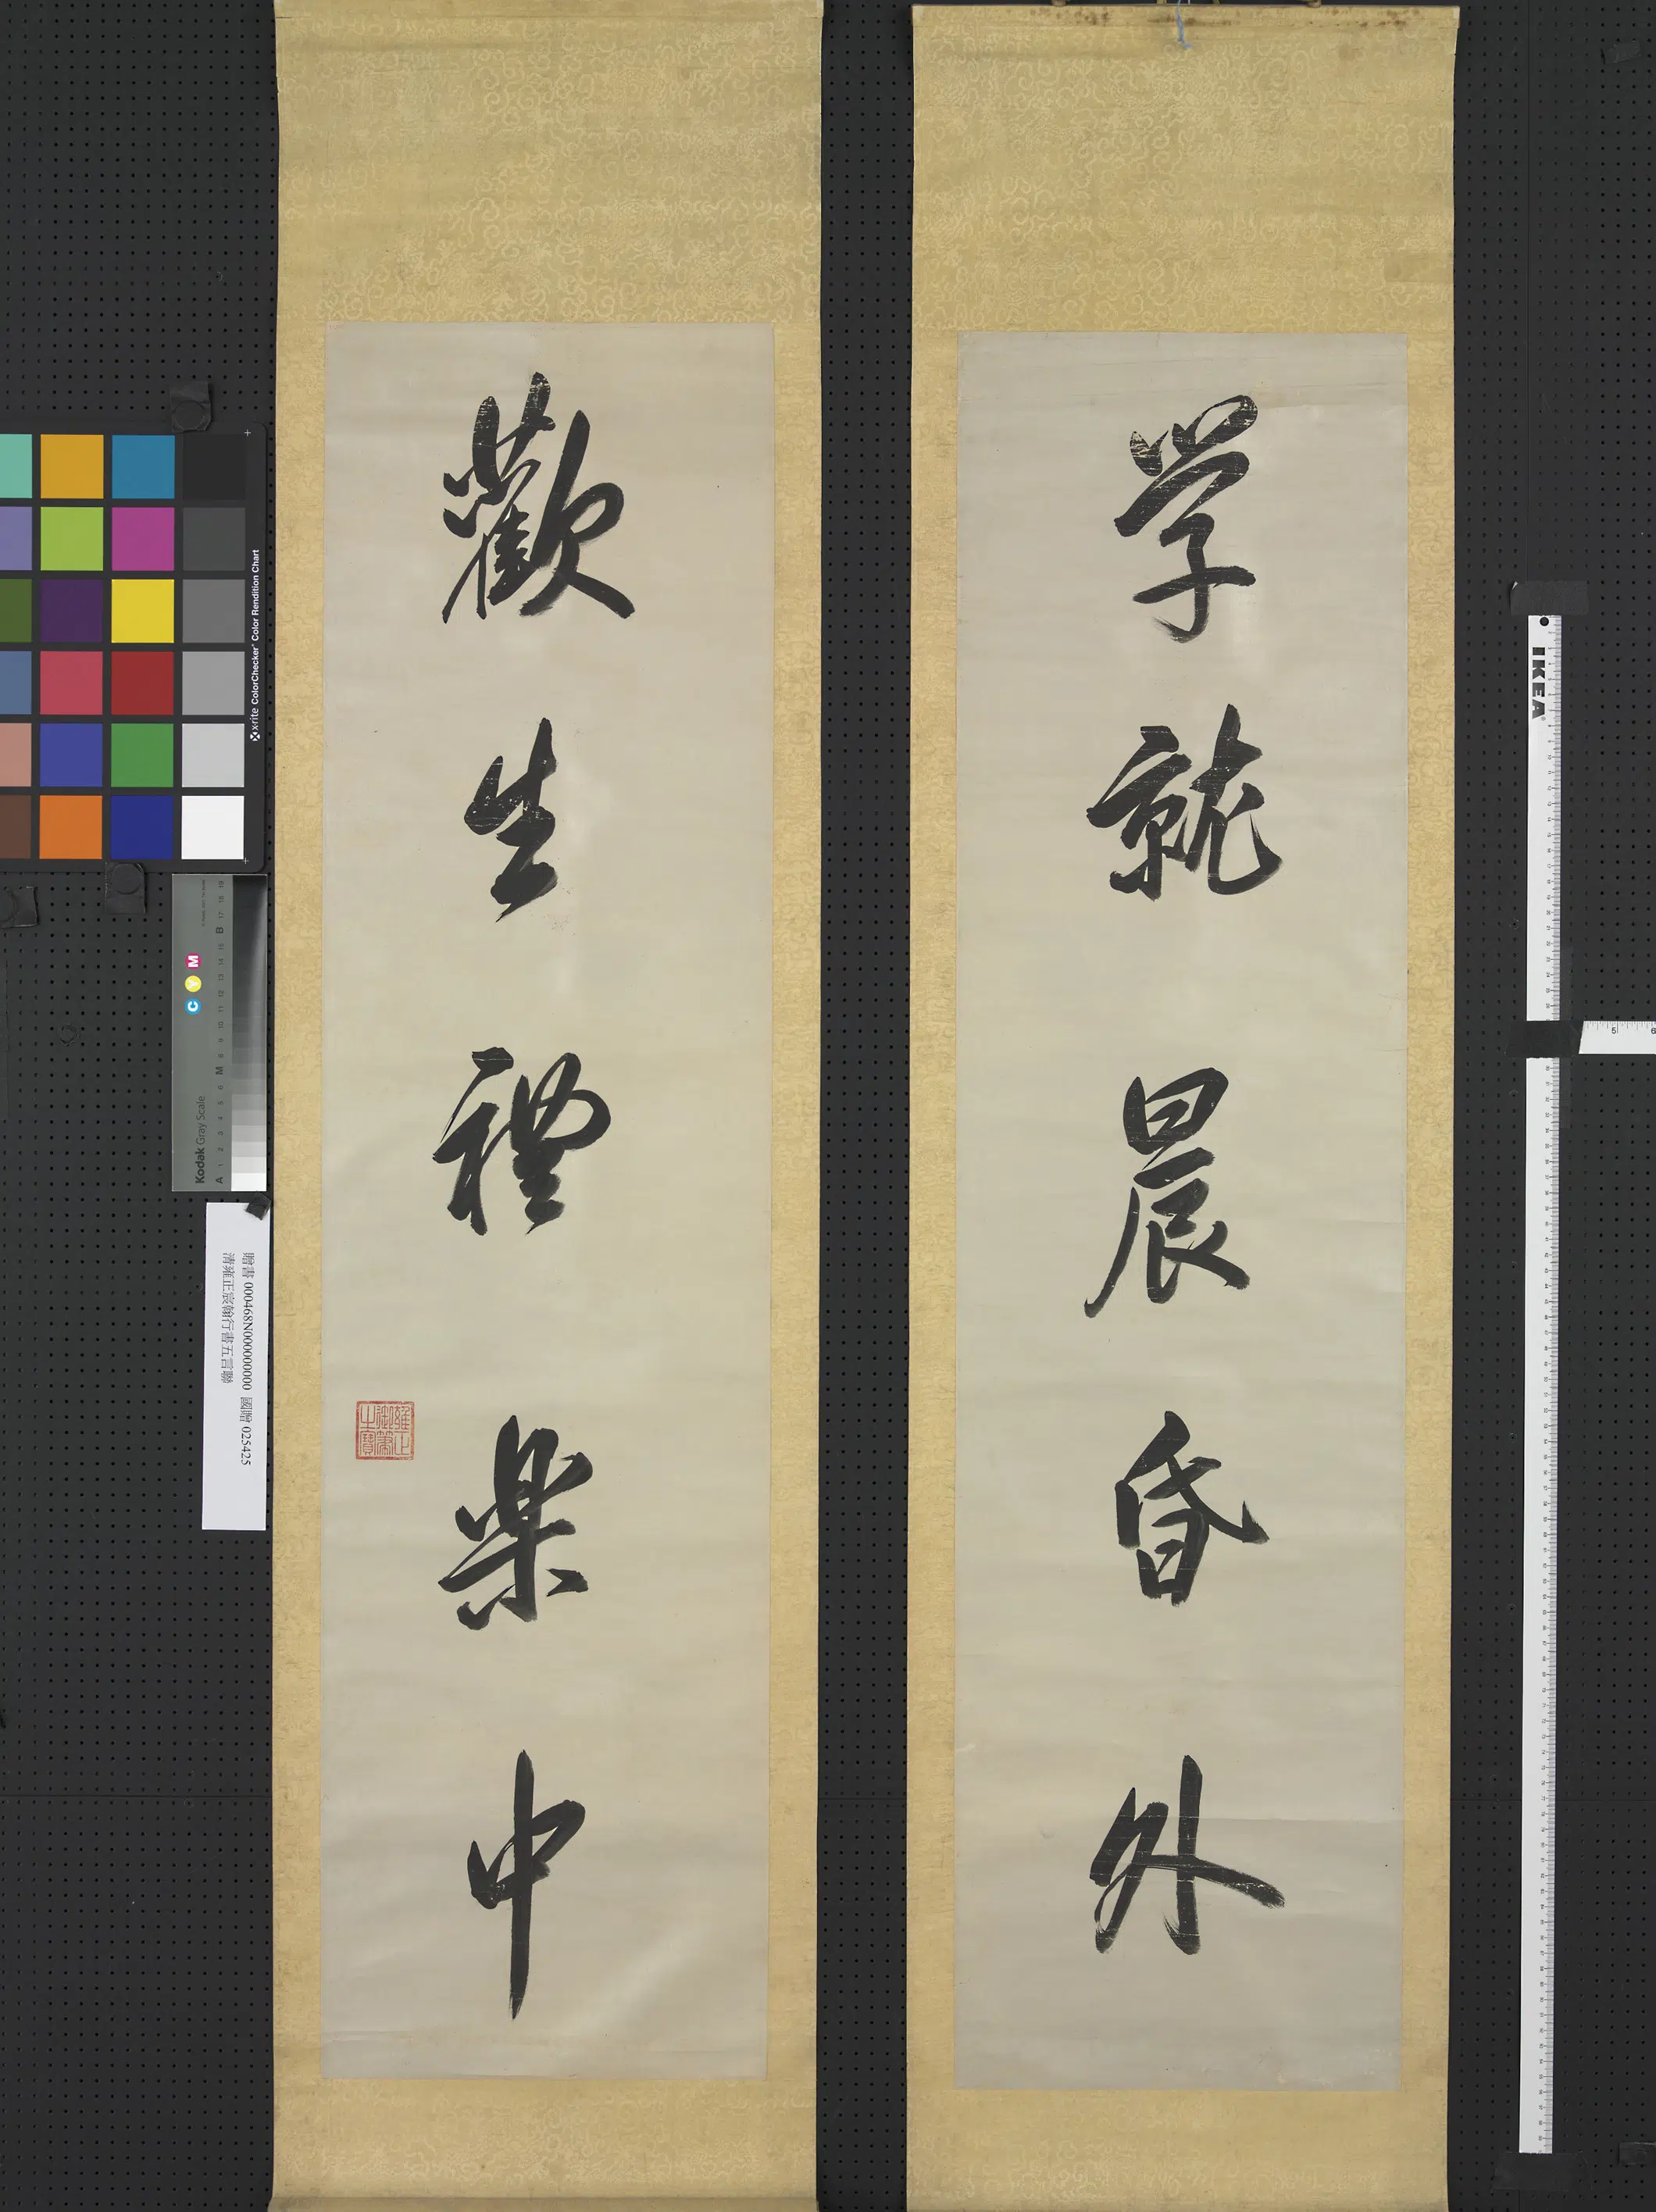 学就晨昏外
歡生禮樂中
雍正御筆之寶
贈書 000468N000000000 國贈 025425
清雍正宸翰行書五言聯
x·rite ColorChecker® Color Rendition Chart
Kodak Gray Scale
C Y M
A 1 2 3 4 5 6 M 8 9 10 11 12 13 14 15 B 17 18 19
IKEA
5 6